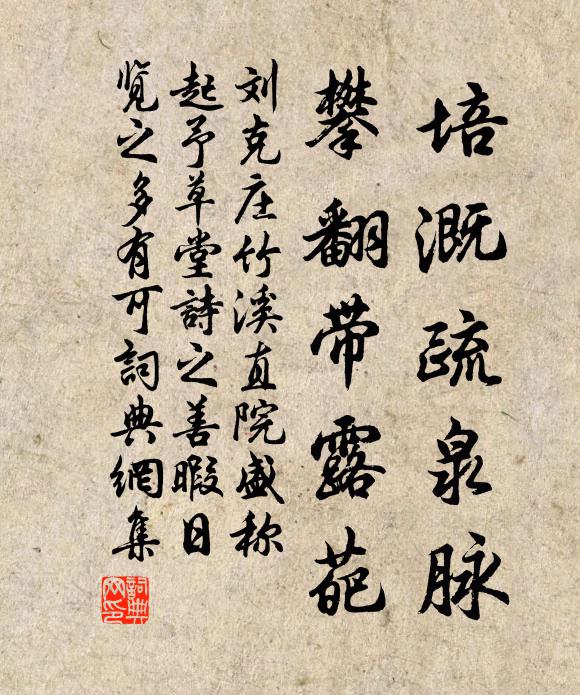 培溉疏泉脉
攀翻带露葩
刘克庄竹溪直院盛称
起予草堂詩之善暇日
览之多有可詞典網集
詞典
网印